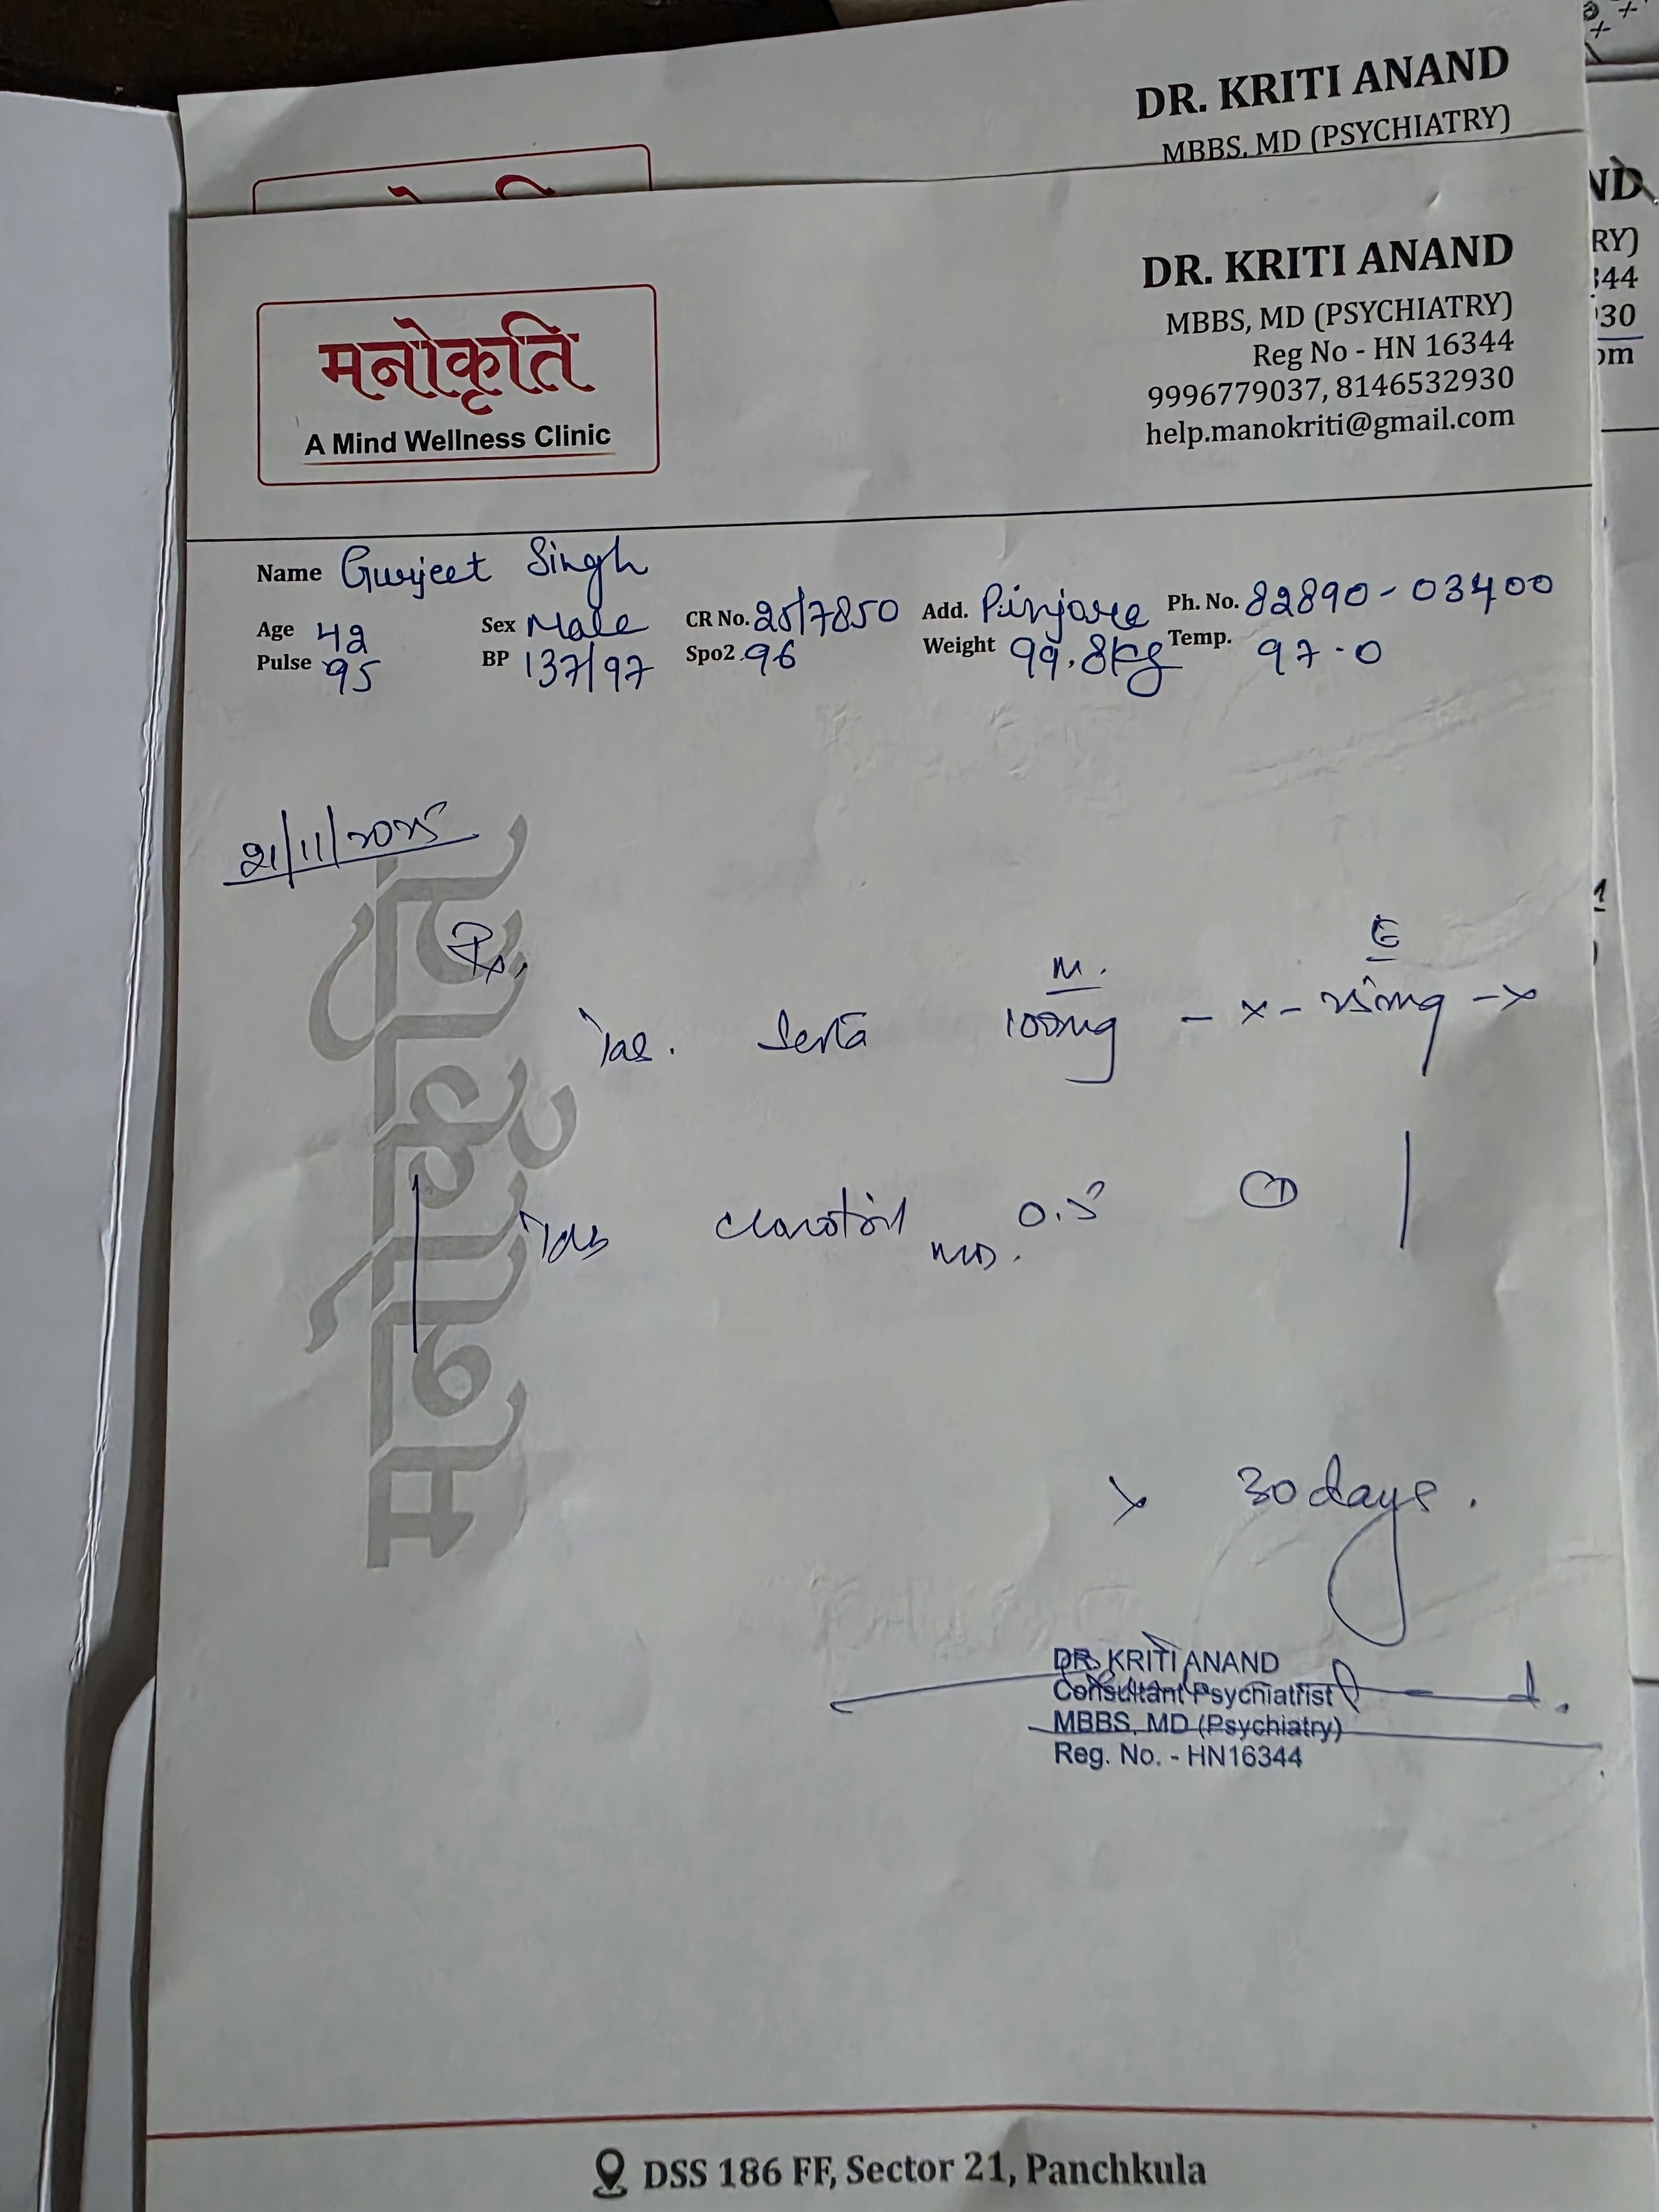 DR. KRITI ANAND
MBBS, MD (PSYCHIATRY)
DR. KRITI ANAND
MBBS, MD (PSYCHIATRY)
Reg No - HN 16344
9996779037, 8146532930
help.manokriti@gmail.com
मनोकृति
A Mind Wellness Clinic
ND
RY)
344
930
om
Name Gurjeet Singh
Age 42 Sex Male CR No. 25/7850 Add. Pinjore Ph. No. 82890-03400
Pulse 95 BP 137/97 Spo2 96 Weight 99.8kg Temp. 97.0
21/11/2025
मनोकृति
Rx,
M. E
Tab. Serta 100mg - x - 25mg - x
Tab MD. 0.5
x 30 days.
DR. KRITI ANAND
Consultant Psychiatrist
MBBS, MD (Psychiatry)
Reg. No. - HN16344
DSS 186 FF, Sector 21, Panchkula